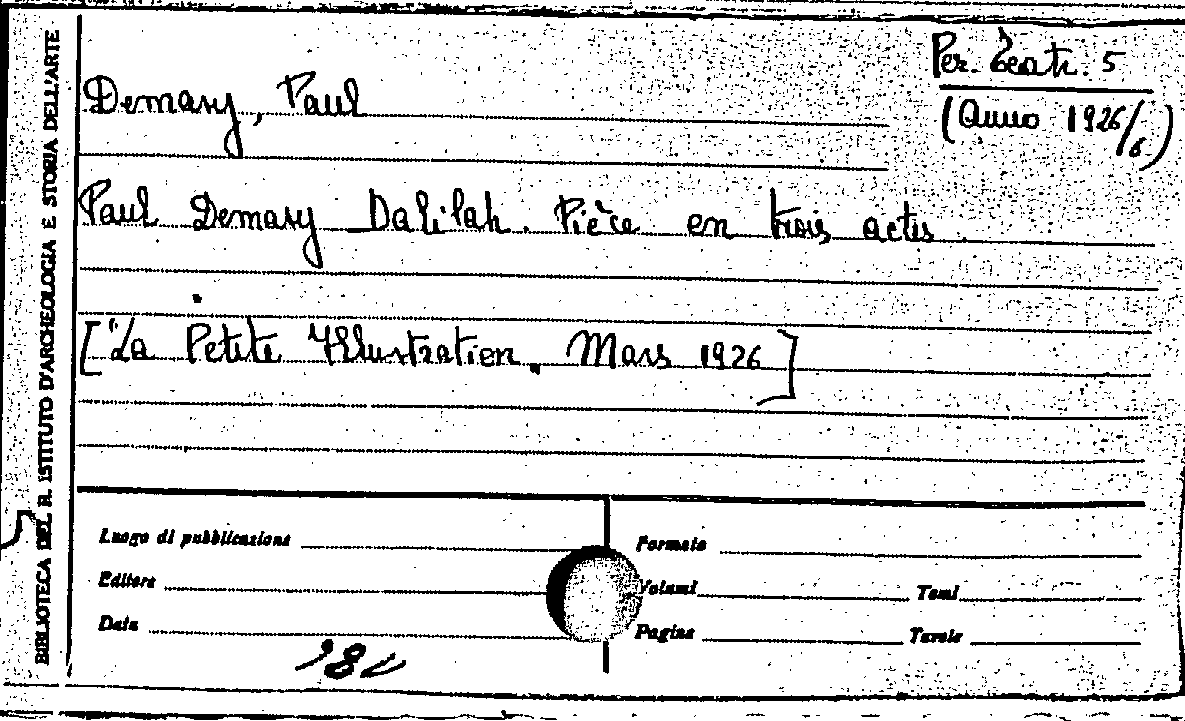 BIBLIOTECA DEL R. ISTITUTO D'ARCHEOLOGIA E STORIA DELL'ARTE
Per. Teatr. 5
(Anno 1926/6)
Demasy, Paul
Paul Demasy Dalilah. Pièce en trois actes
["La Petite Illustration, Mars 1926]
Luogo di pubblicazione
Formato
Editore
Volumi
Tomi
Data
Pagine
Tavole